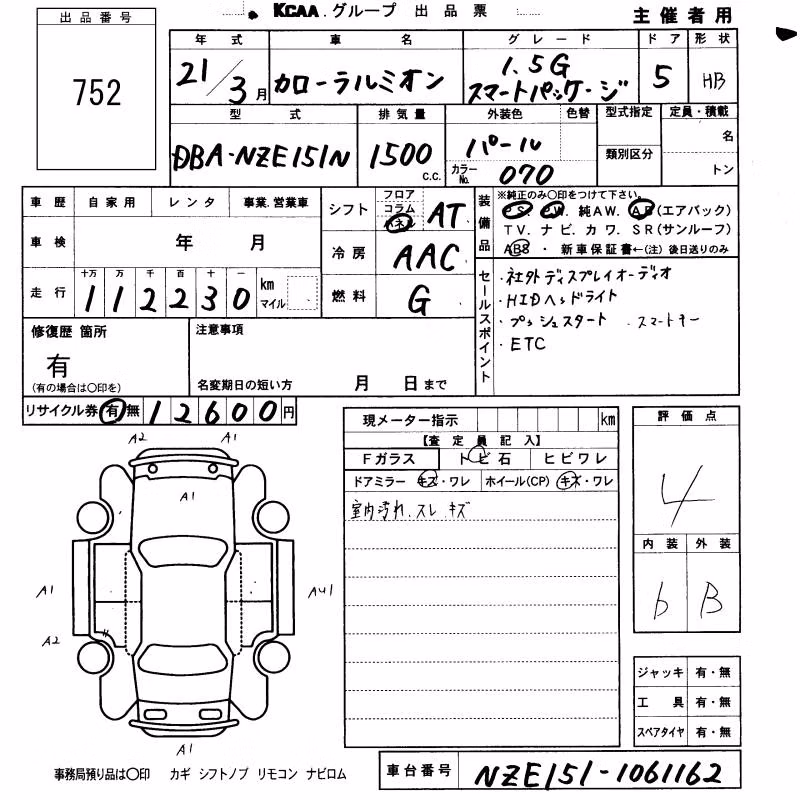 KCAA.グループ 出品票
主催者用
出品番号
752
年式 車名 グレード ドア 形状
21/3月 カローラルミオン 1.5G スマートパッケージ 5 HB
型式 排気量 外装色 色替 型式指定 定員・積載
DBA-NZE151N 1500c.c. パール 類別区分 名
カラーNo. 070 トン
車歴 自家用 レンタ 事業.営業車
車検 年 月
走行 十万 万 千 百 十 一
112230 km マイル
シフト フロア コラム パネル AT
冷房 AAC
燃料 G
装備品
※純正のみ〇印をつけて下さい。
P.S. P.W. 純AW. AB(エアバック)
TV. ナビ. カワ. SR(サンルーフ)
ABS ・ 新車保証書←(注) 後日送りのみ
セールスポイント
・社外ディスプレイオーディオ
・HIDヘッドライト
・プッシュスタート ・スマートキー
・ETC
修復歴 箇所
有
(有の場合は〇印を)
注意事項
名変期日の短い方 月 日まで
リサイクル券 有 無 12600円
現メーター指示 km
【査定員記入】
Fガラス トビ石 ヒビワレ
ドアミラー キズ・ワレ ホイール(CP) キズ・ワレ
室内汚れ.スレ.キズ
評価点
4
内装 外装
b B
A2 A1
A1
A1 AU1
A2
A1
ジャッキ 有・無
工具 有・無
スペアタイヤ 有・無
事務局預り品は〇印 カギ シフトノブ リモコン ナビロム
車台番号 NZE151-1061162